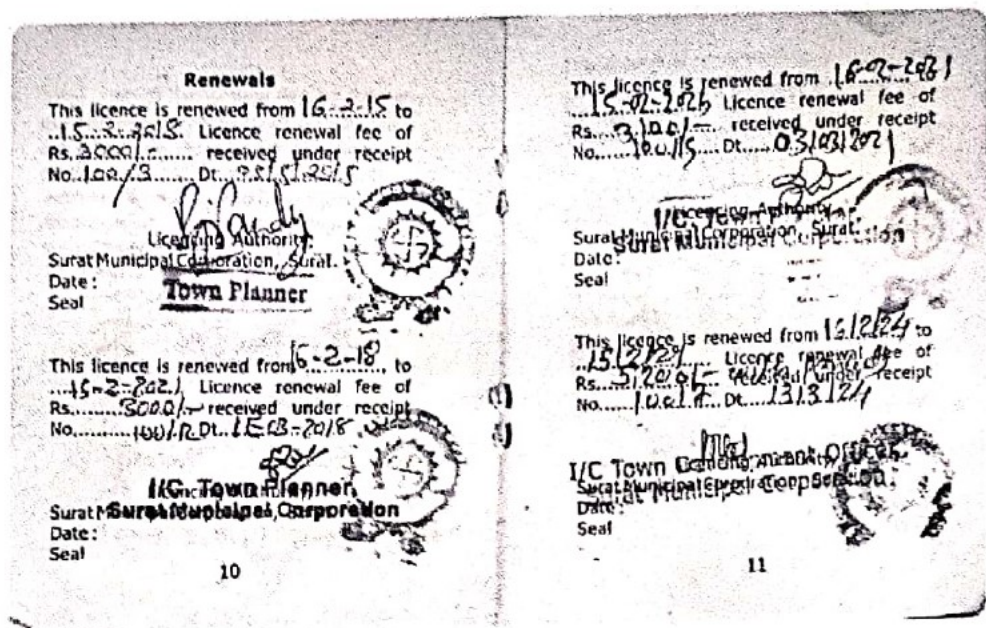 Renewals
This licence is renewed from 16-2-15 to
15-2-2018. Licence renewal fee of
Rs. 3000/- received under receipt
No. 100/3 Dt.
Licencing Authority,
Surat Municipal Corporation, Surat.
Date:
Seal
Town Planner
This licence is renewed from 16-2-18 to
15-2-2021 Licence renewal fee of
Rs. 3000/- received under receipt
No. Dt.
I/C. Town Planner
Surat Municipal Corporation
Date:
Seal
10
This licence is renewed from 16-02-2021
Licence renewal fee of
Rs. received under receipt
No. Dt. 03/03/2021
Licencing Authority,
I/C Town Planner
Surat Municipal Corporation, Surat.
Surat Municipal Corporation
Date:
Seal
This licence is renewed from 16/2/24 to
Licence renewal fee of
Rs. received under receipt
No. Dt. 13/3/24
Licencing Authority,
I/C Town Officer
Surat Municipal Corporation
Date:
Seal
11